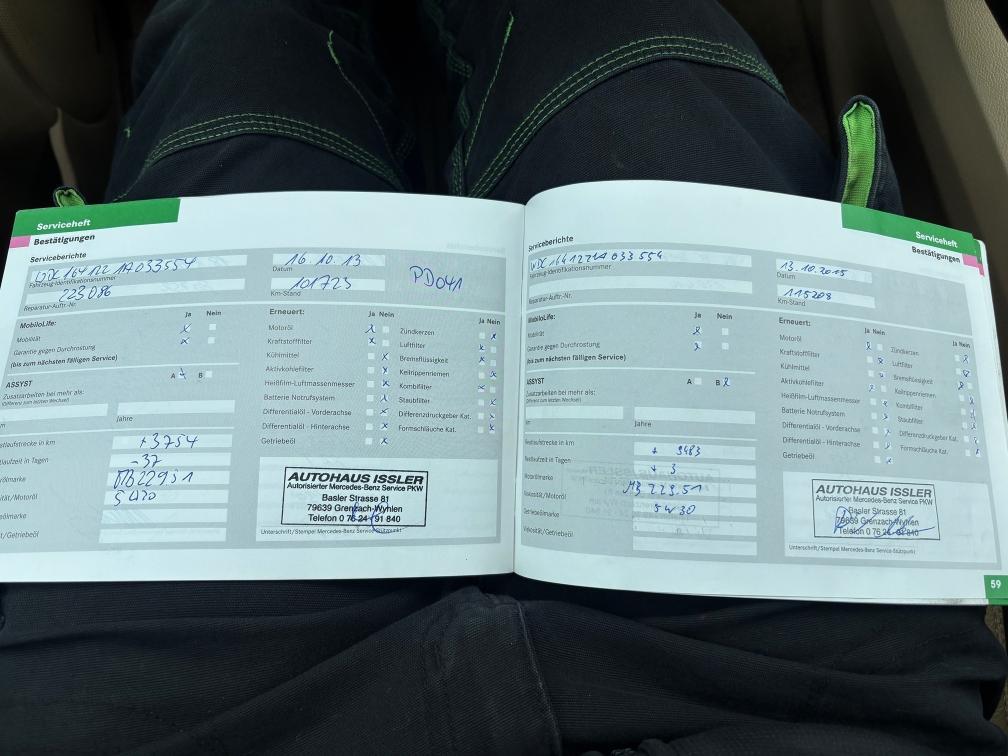 Serviceheft
Bestätigungen
Serviceberichte
WDC164122 1A033554
Fahrzeug-Identifikationsnummer
223086
Reparatur-Auftr.-Nr.
16.10.13
Datum
101723
Km-Stand
PD041
MobiloLife:
Ja Nein
Mobilität
Garantie gegen Durchrostung
(bis zum nächsten fälligen Service)
ASSYST
A B
Zusatzarbeiten bei mehr als:
(Differenz zum letzten Wechsel)
m
Jahre
estlaufstrecke in km
+3754
estlaufzeit in Tagen
-37
torölmarke
MB22951
sität/Motoröl
5W30
iebeölmarke
t/Getriebeöl
Erneuert:
Ja Nein
Motoröl
Kraftstofffilter
Kühlmittel
Aktivkohlefilter
Heißfilm-Luftmassenmesser
Batterie Notrufsystem
Differentialöl - Vorderachse
Differentialöl - Hinterachse
Getriebeöl
Ja Nein
Zündkerzen
Luftfilter
Bremsflüssigkeit
Keilrippenriemen
Kombifilter
Staubfilter
Differenzdruckgeber Kat.
Formschläuche Kat.
AUTOHAUS ISSLER
Autorisierter Mercedes-Benz Service PKW
Basler Strasse 81
79639 Grenzach-Wyhlen
Telefon 0 76 24 - 91 840
Unterschrift/Stempel Mercedes-Benz Service-Stützpunkt
Serviceheft
Bestätigungen
Serviceberichte
WDC1641221A033554
Fahrzeug-Identifikationsnummer
Reparatur-Auftr.-Nr.
13.10.2015
Datum
115208
Km-Stand
MobiloLife:
Ja Nein
Mobilität
Garantie gegen Durchrostung
(bis zum nächsten fälligen Service)
ASSYST
A B
Zusatzarbeiten bei mehr als:
(Differenz zum letzten Wechsel)
km
Jahre
Restlaufstrecke in km
+ 9483
Restlaufzeit in Tagen
+ 3
Motorölmarke
MB 229.51
Viskosität/Motoröl
5W30
Getriebeölmarke
Viskosität/Getriebeöl
Erneuert:
Ja Nein
Motoröl
Kraftstofffilter
Kühlmittel
Aktivkohlefilter
Heißfilm-Luftmassenmesser
Batterie Notrufsystem
Differentialöl - Vorderachse
Differentialöl - Hinterachse
Getriebeöl
Ja Nein
Zündkerzen
Luftfilter
Bremsflüssigkeit
Keilrippenriemen
Kombifilter
Staubfilter
Differenzdruckgeber Kat.
Formschläuche Kat.
AUTOHAUS ISSLER
Autorisierter Mercedes-Benz Service PKW
Basler Strasse 81
79639 Grenzach-Wyhlen
Telefon 0 76 24 - 91 840
Unterschrift/Stempel Mercedes-Benz Service-Stützpunkt
59